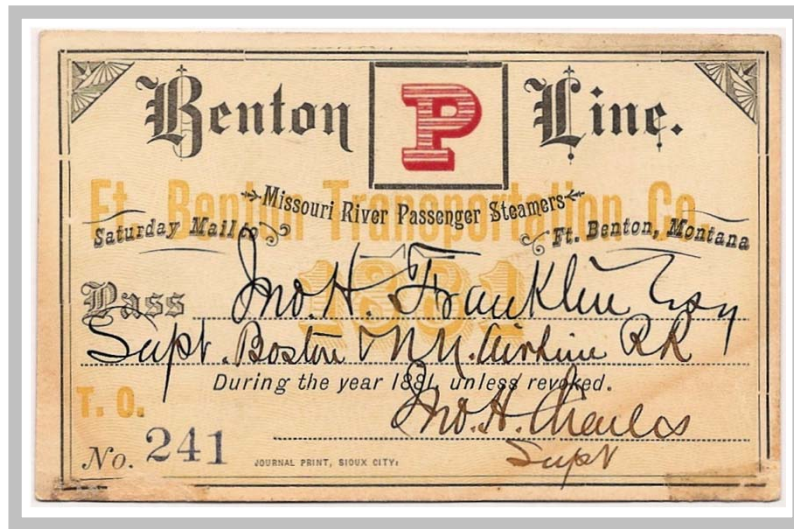 Benton P Line.
Ft. Benton Transportation Co.
Missouri River Passenger Steamers
Saturday Mail Ft. Benton, Montana
1881
Pass Jno. H. Franklin Esq
Supt. Boston & N.Y. Airline RR
During the year 1881, unless revoked.
T. O.
Jno. H. Charles
Supt
No. 241
JOURNAL PRINT, SIOUX CITY.